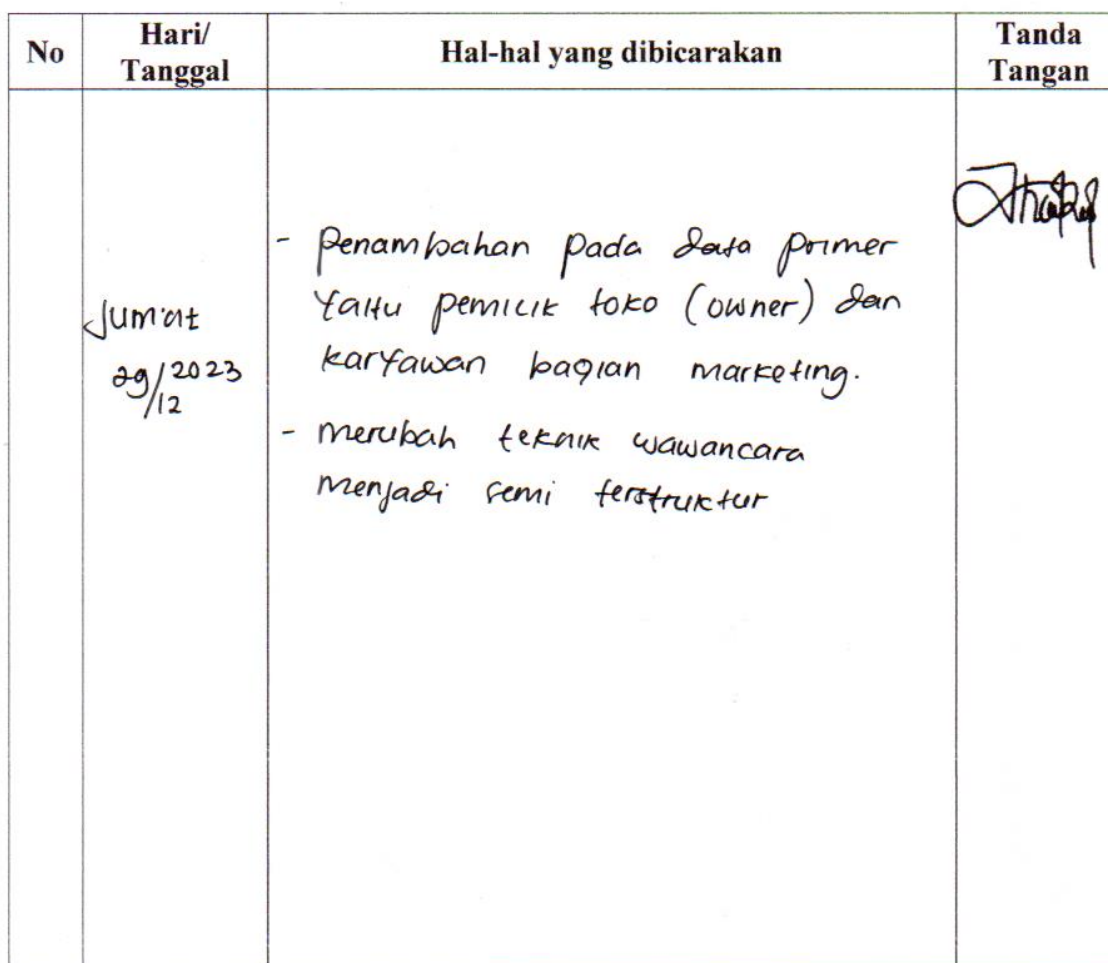 No
Hari/
Tanggal
Hal-hal yang dibicarakan
Tanda
Tangan
Jum'at
29/2023
/12
- Penambahan pada data primer
yaitu pemilik toko (owner) dan
karyawan bagian marketing.
- merubah teknik wawancara
menjadi semi terstruktur